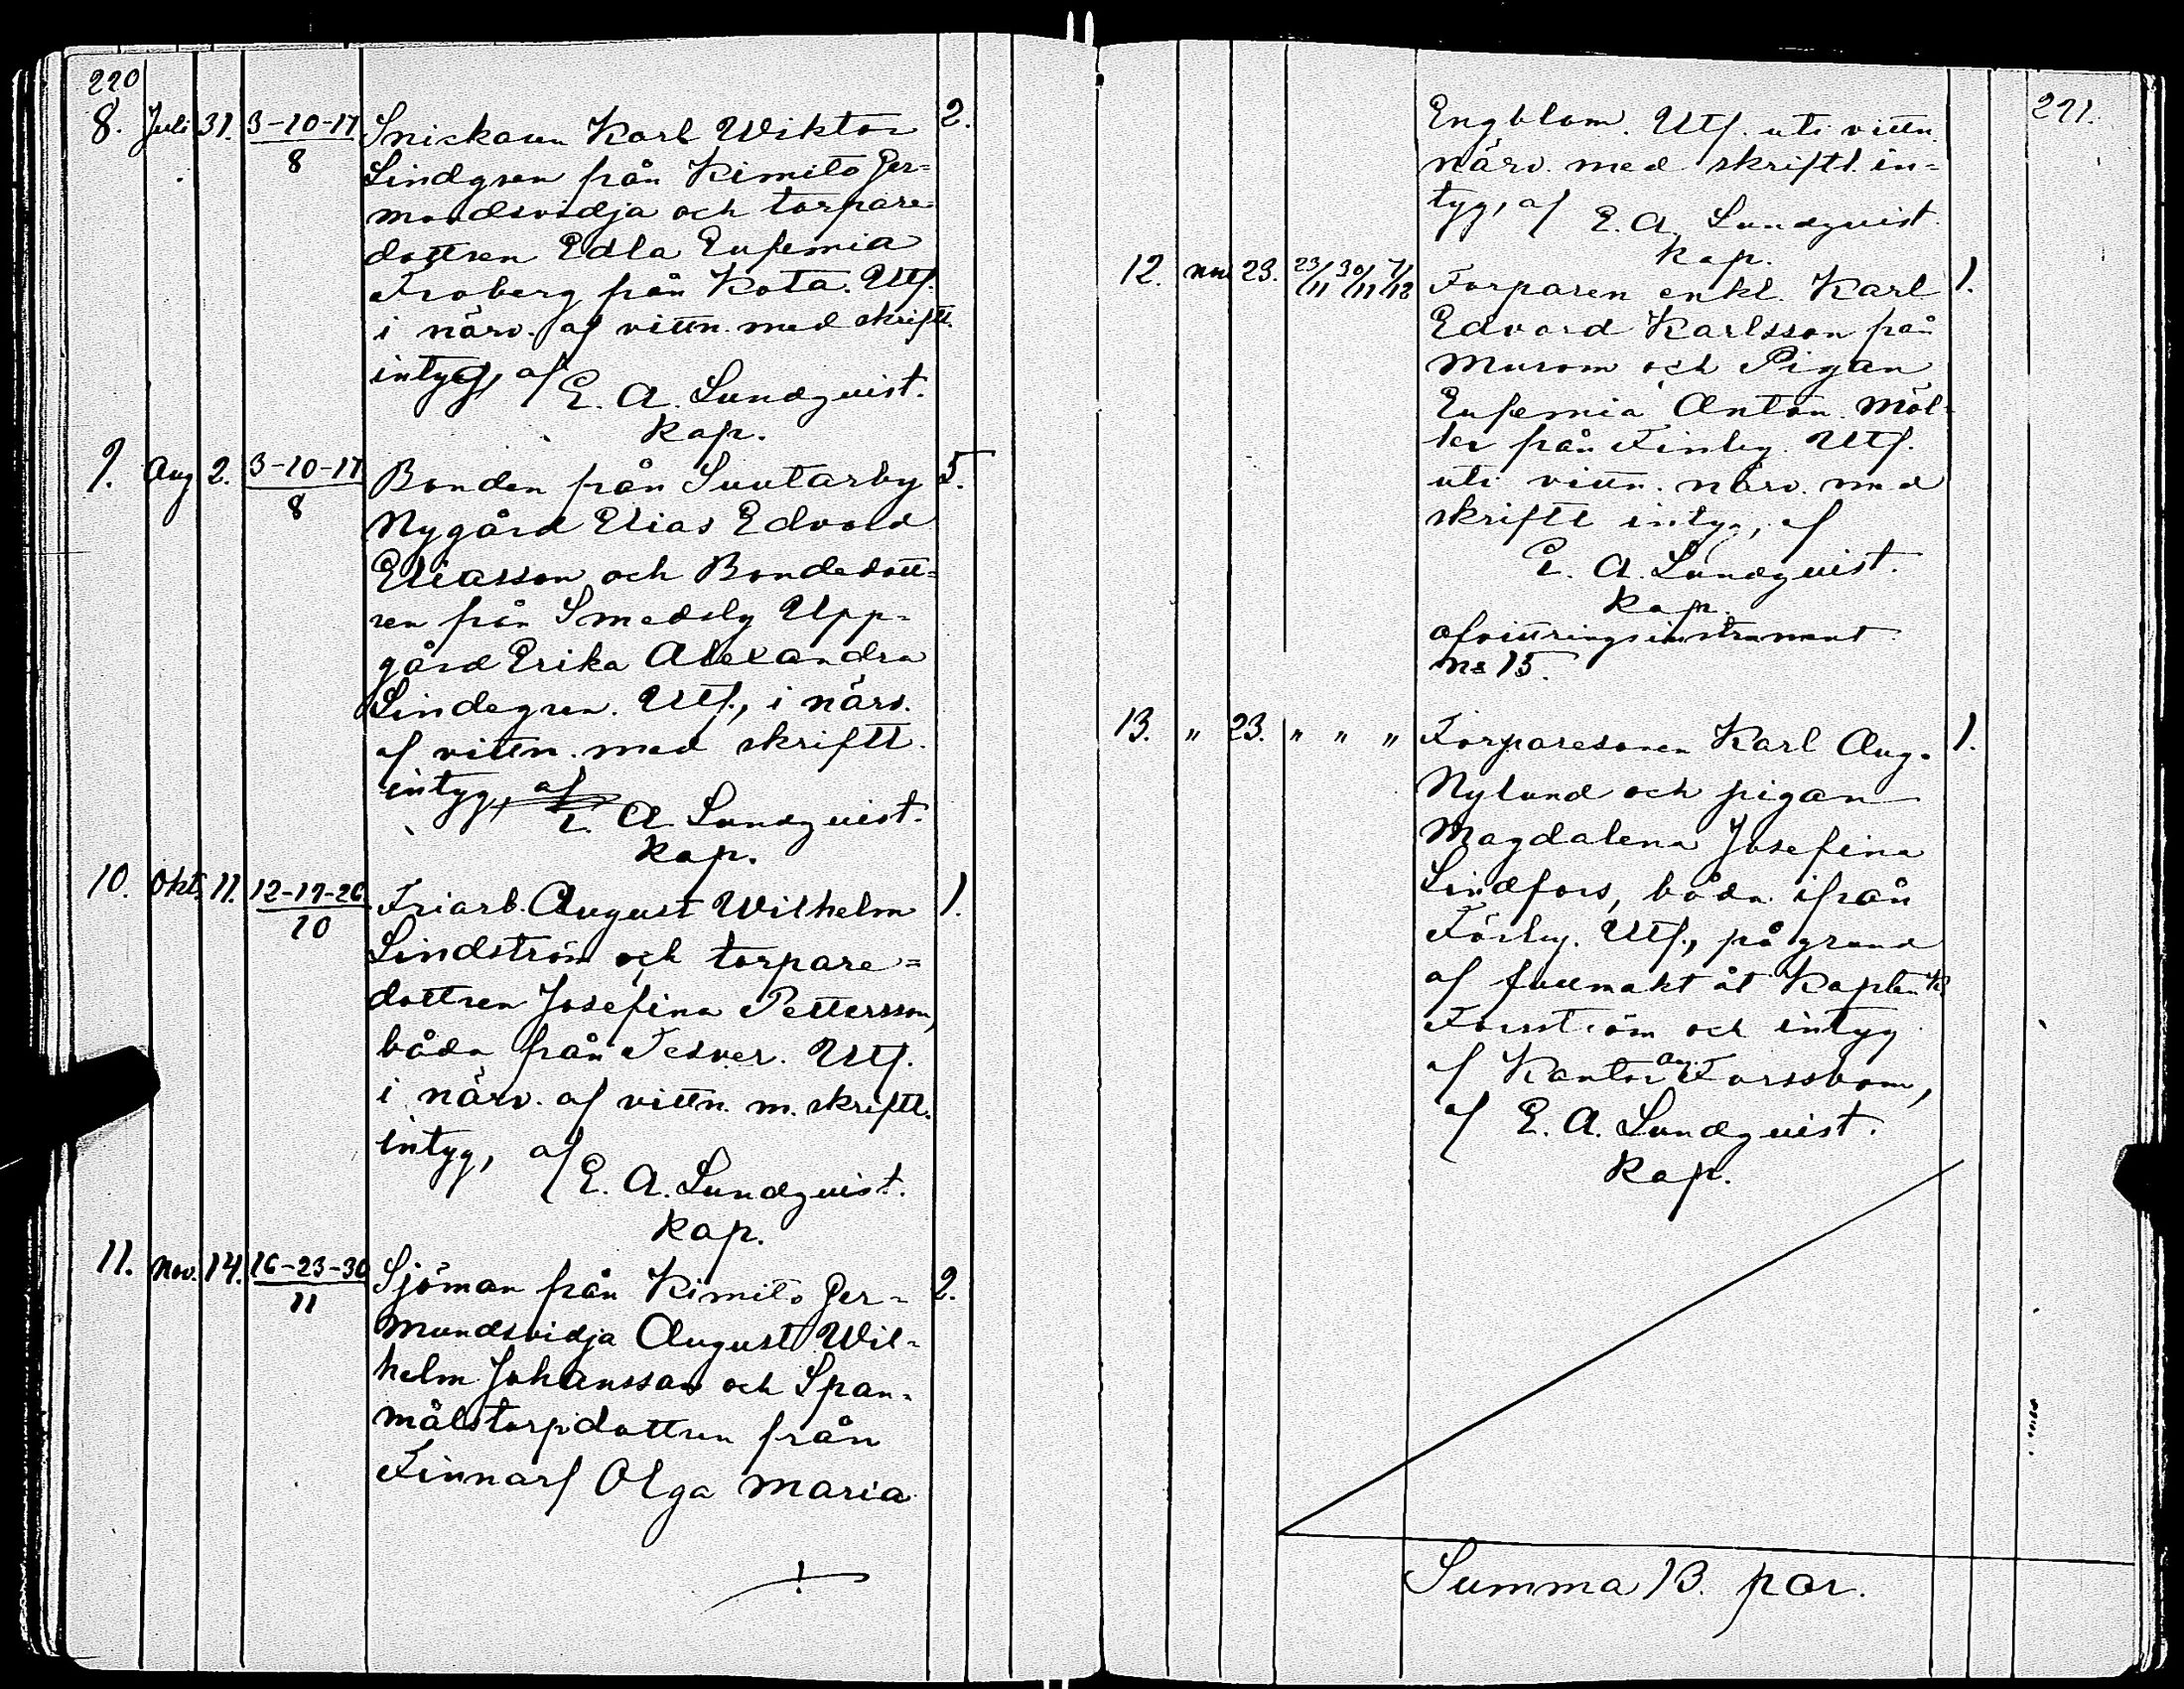 220
8. Juli 31. 3-10-17/8 Snickaren Karl Wiktor 2.
Lindgren från Kimito Ger=
mundsvidja och torpare
dottren Edla Eufemia
Froberg från Kota. Utf.
i närv. af vittn. med skriftl.
intyg, af
E. A. Lundqvist.
kap.
9. Aug 2. 3-10-17/8 Bonden från Suutarby 5.
Nygård Elias Edvard
Eliasson och Bondedott=
ren från Smedsby Upp-
gård Erika Alexandra
Lindegren. Utf., i närv.
af vittn. med skriftl.
intyg, af
E. A. Lundqvist.
kap.
10. Okt. 11. 12-19-26/10 Friarb. August Wilhelm 1.
Lindström och torpare=
dottren Josefina Pettersson,
båda från Tesver. Utf.
i närv. af vittn. m. skriftl.
intyg, af
E. A. Lundqvist.
kap.
11. Nov. 14. 16-23-30/11 Sjöman från Kimito Ger- 2.
mundsvidja August Wil-
helm Johansson och Span-
målstorpdottren från
Finnarf Olga Maria
221.
Engblom. Utf. uti vittn.
närv. med skriftl. in-
tyg, af E. A. Lundqvist.
kap.
12. Nov 23. 23/11 30/11 7/12 Torparen enkl. Karl 1.
Edvard Karlsson från
Murom och Pigan
Eufemia Anton. Möl-
ler från Finby. Utf.
uti vittn. närv. med
skriftl intyg, af
E. A. Lundqvist.
kap.
afvittringsinstrument
No 15.
13. " 23. " " " Torparesonen Karl Aug. 1.
Nylund och pigan
Magdalena Josefina
Lindfors, båda ifrån
Förby. Utf., på grund
af fullmakt åt Kapten K.
Forström och intyg
af Kantor Aug. Forssbom,
af E. A. Lundqvist.
kap.
Summa 13. par.